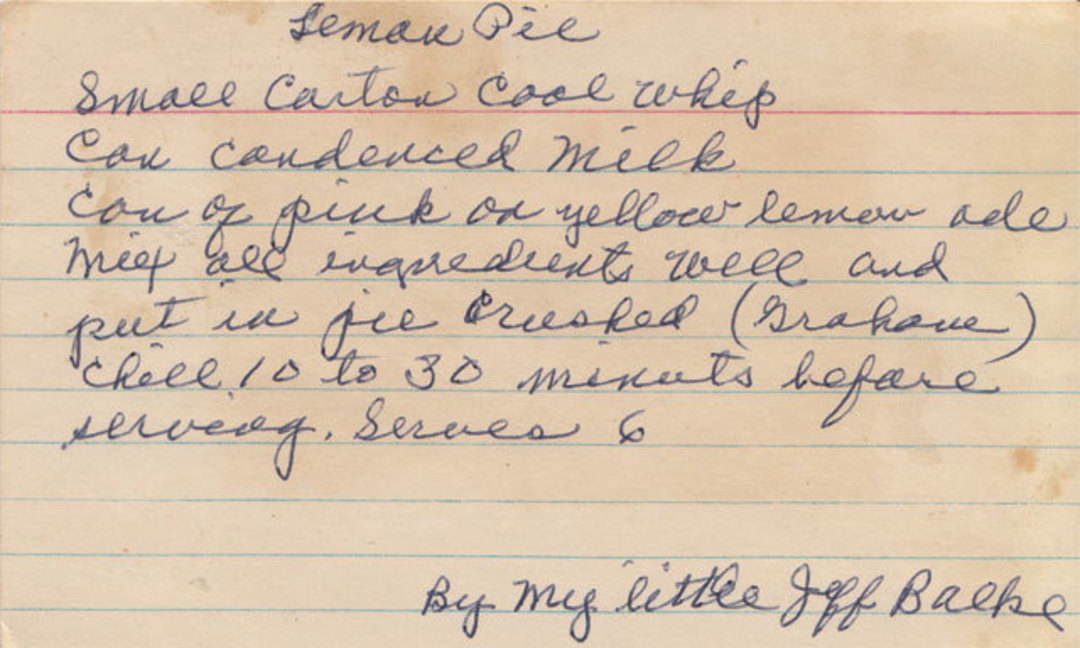 Lemon Pie
Small Carton Cool Whip
Can condenced Milk
Can of pink or yellow lemon ade
Mix all ingredients well and
put in pie crushed (Grahame)
Chill 10 to 30 minuts before
serving. Serves 6
By My little Jeff Balke